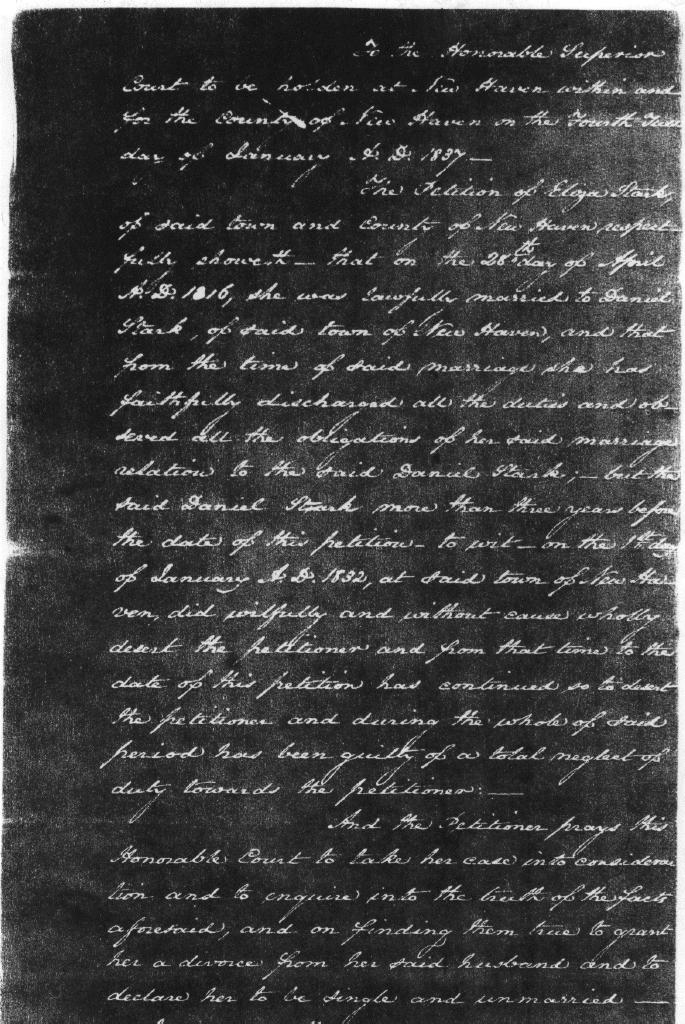 To the Honorable Superior
Court to be holden at New Haven within and
for the County of New Haven on the Fourth Tues
day of January A.D. 1837 —
The Petition of Eliza Stark,
of said town and County of New Haven respect-
fully showeth — that on the 28th day of April
A.D. 1816, she was lawfully married to Daniel
Stark, of said town of New Haven, and that
from the time of said marriage she has
faithfully discharged all the duties and ob-
served all the obligations of her said marriage
relation to the said Daniel Stark; — but the
said Daniel Stark more than three years before
the date of this petition — to wit — on the 1st day
of January A.D. 1832, at said town of New Ha-
ven, did wilfully and without cause wholly
desert the petitioner and from that time to the
date of this petition has continued so to desert
the petitioner and during the whole of said
period has been guilty of a total neglect of
duty towards the petitioner: —
And the Petitioner prays this
Honorable Court to take her case into considera
tion and to inquire into the truth of the facts
aforesaid, and on finding them true to grant
her a divorce from her said husband and to
declare her to be single and unmarried —